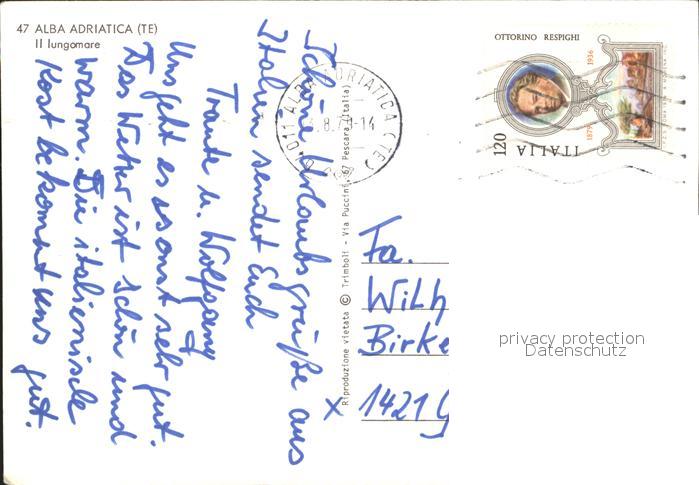 47 ALBA ADRIATICA (TE)
Il lungomare
Schöne Urlaubsgrüße aus
Italien sendet Euch
Traute u. Wolfgang
Uns geht es sonst sehr gut.
Das Wetter ist schön und
warm. Die italienische
Kost bekommt uns gut.
ALBA ADRIATICA (TE)
Riproduzione vietata © Trimboli - Via Puccini, 67 Pescara (Italia)
OTTORINO RESPIGHI
1879
1936
120
ITALIA
Fa.
Wilh
Birke
1421
privacy protection
Datenschutz